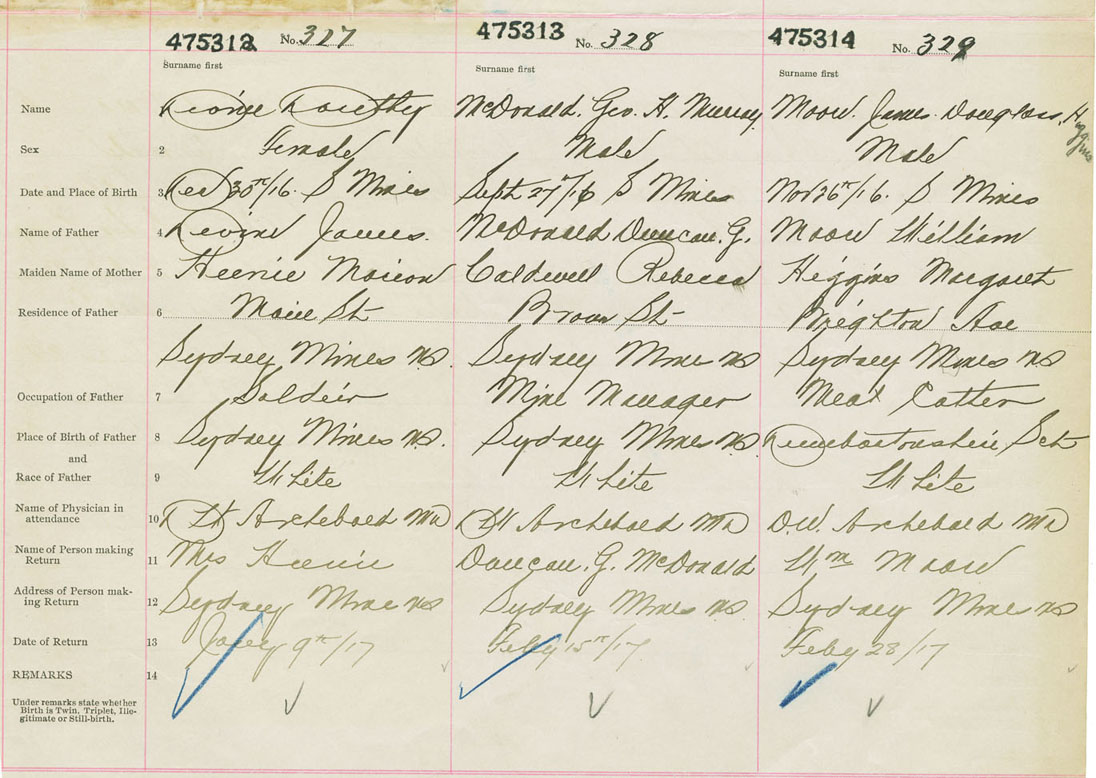 475312 No. 327 475313 No. 328 475314 No. 329
Surname first Surname first Surname first
Name McDonald. Geo. H. Murray. Moow. James Douglass, Higgins
Sex 2 Female Male Male
Date and Place of Birth 3 Dec 30th/16. S Mines Sept 27th/16 S Mines Nov 26th/16. S Mines
Name of Father 4 James. McDonald Duncan. G. William
Maiden Name of Mother 5 Heenie Marion Caldwell Rebecca Higgins Margaret
Residence of Father 6 Main St Brown St Brighton Ave
Sydney Mines NS. Sydney Mine NS Sydney Mines NS
Occupation of Father 7 Soldeir Mine Manager Meat Cutter
Place of Birth of Father 8 Sydney Mines NS. Sydney Mines NS Sct
and
Race of Father 9 White White White
Name of Physician in
attendance 10 Archebald MD Archebald MD D.W. Archebald MD
Name of Person making
Return 11 Mrs Heenie Duncan. G. McDonald Wm
Address of Person mak-
ing Return 12 Sydney Mine NS Sydney Mines NS Sydney Mine NS
Date of Return 13 Jany 9th/17 Feby 15th/17 Feby 28/17
REMARKS 14
Under remarks state whether
Birth is Twin, Triplet, Ille-
gitimate or Still-birth.